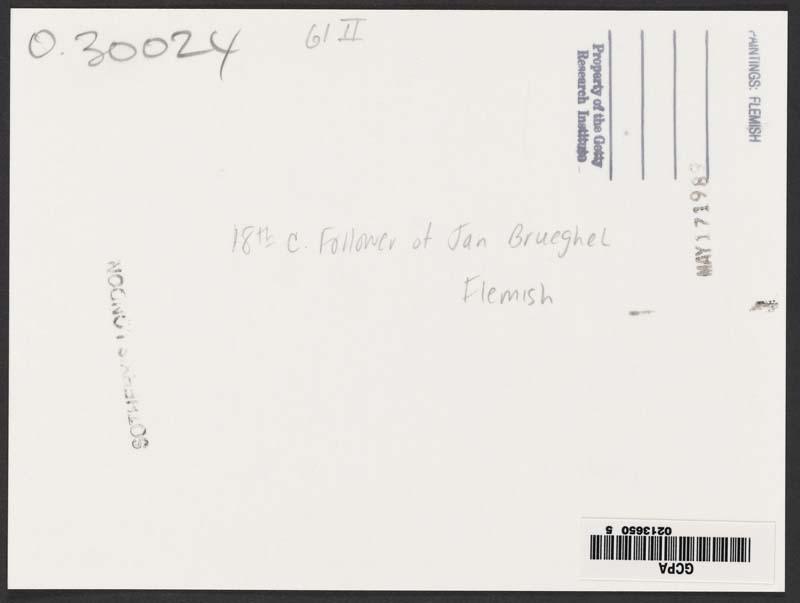 0.30024
61 II
Property of the Getty
Research Institute
PAINTINGS: FLEMISH
MAY 17 198
18th c. Follower of Jan Brueghel
Flemish
SOTHEBY'S LONDON
GCPA
0213650 5